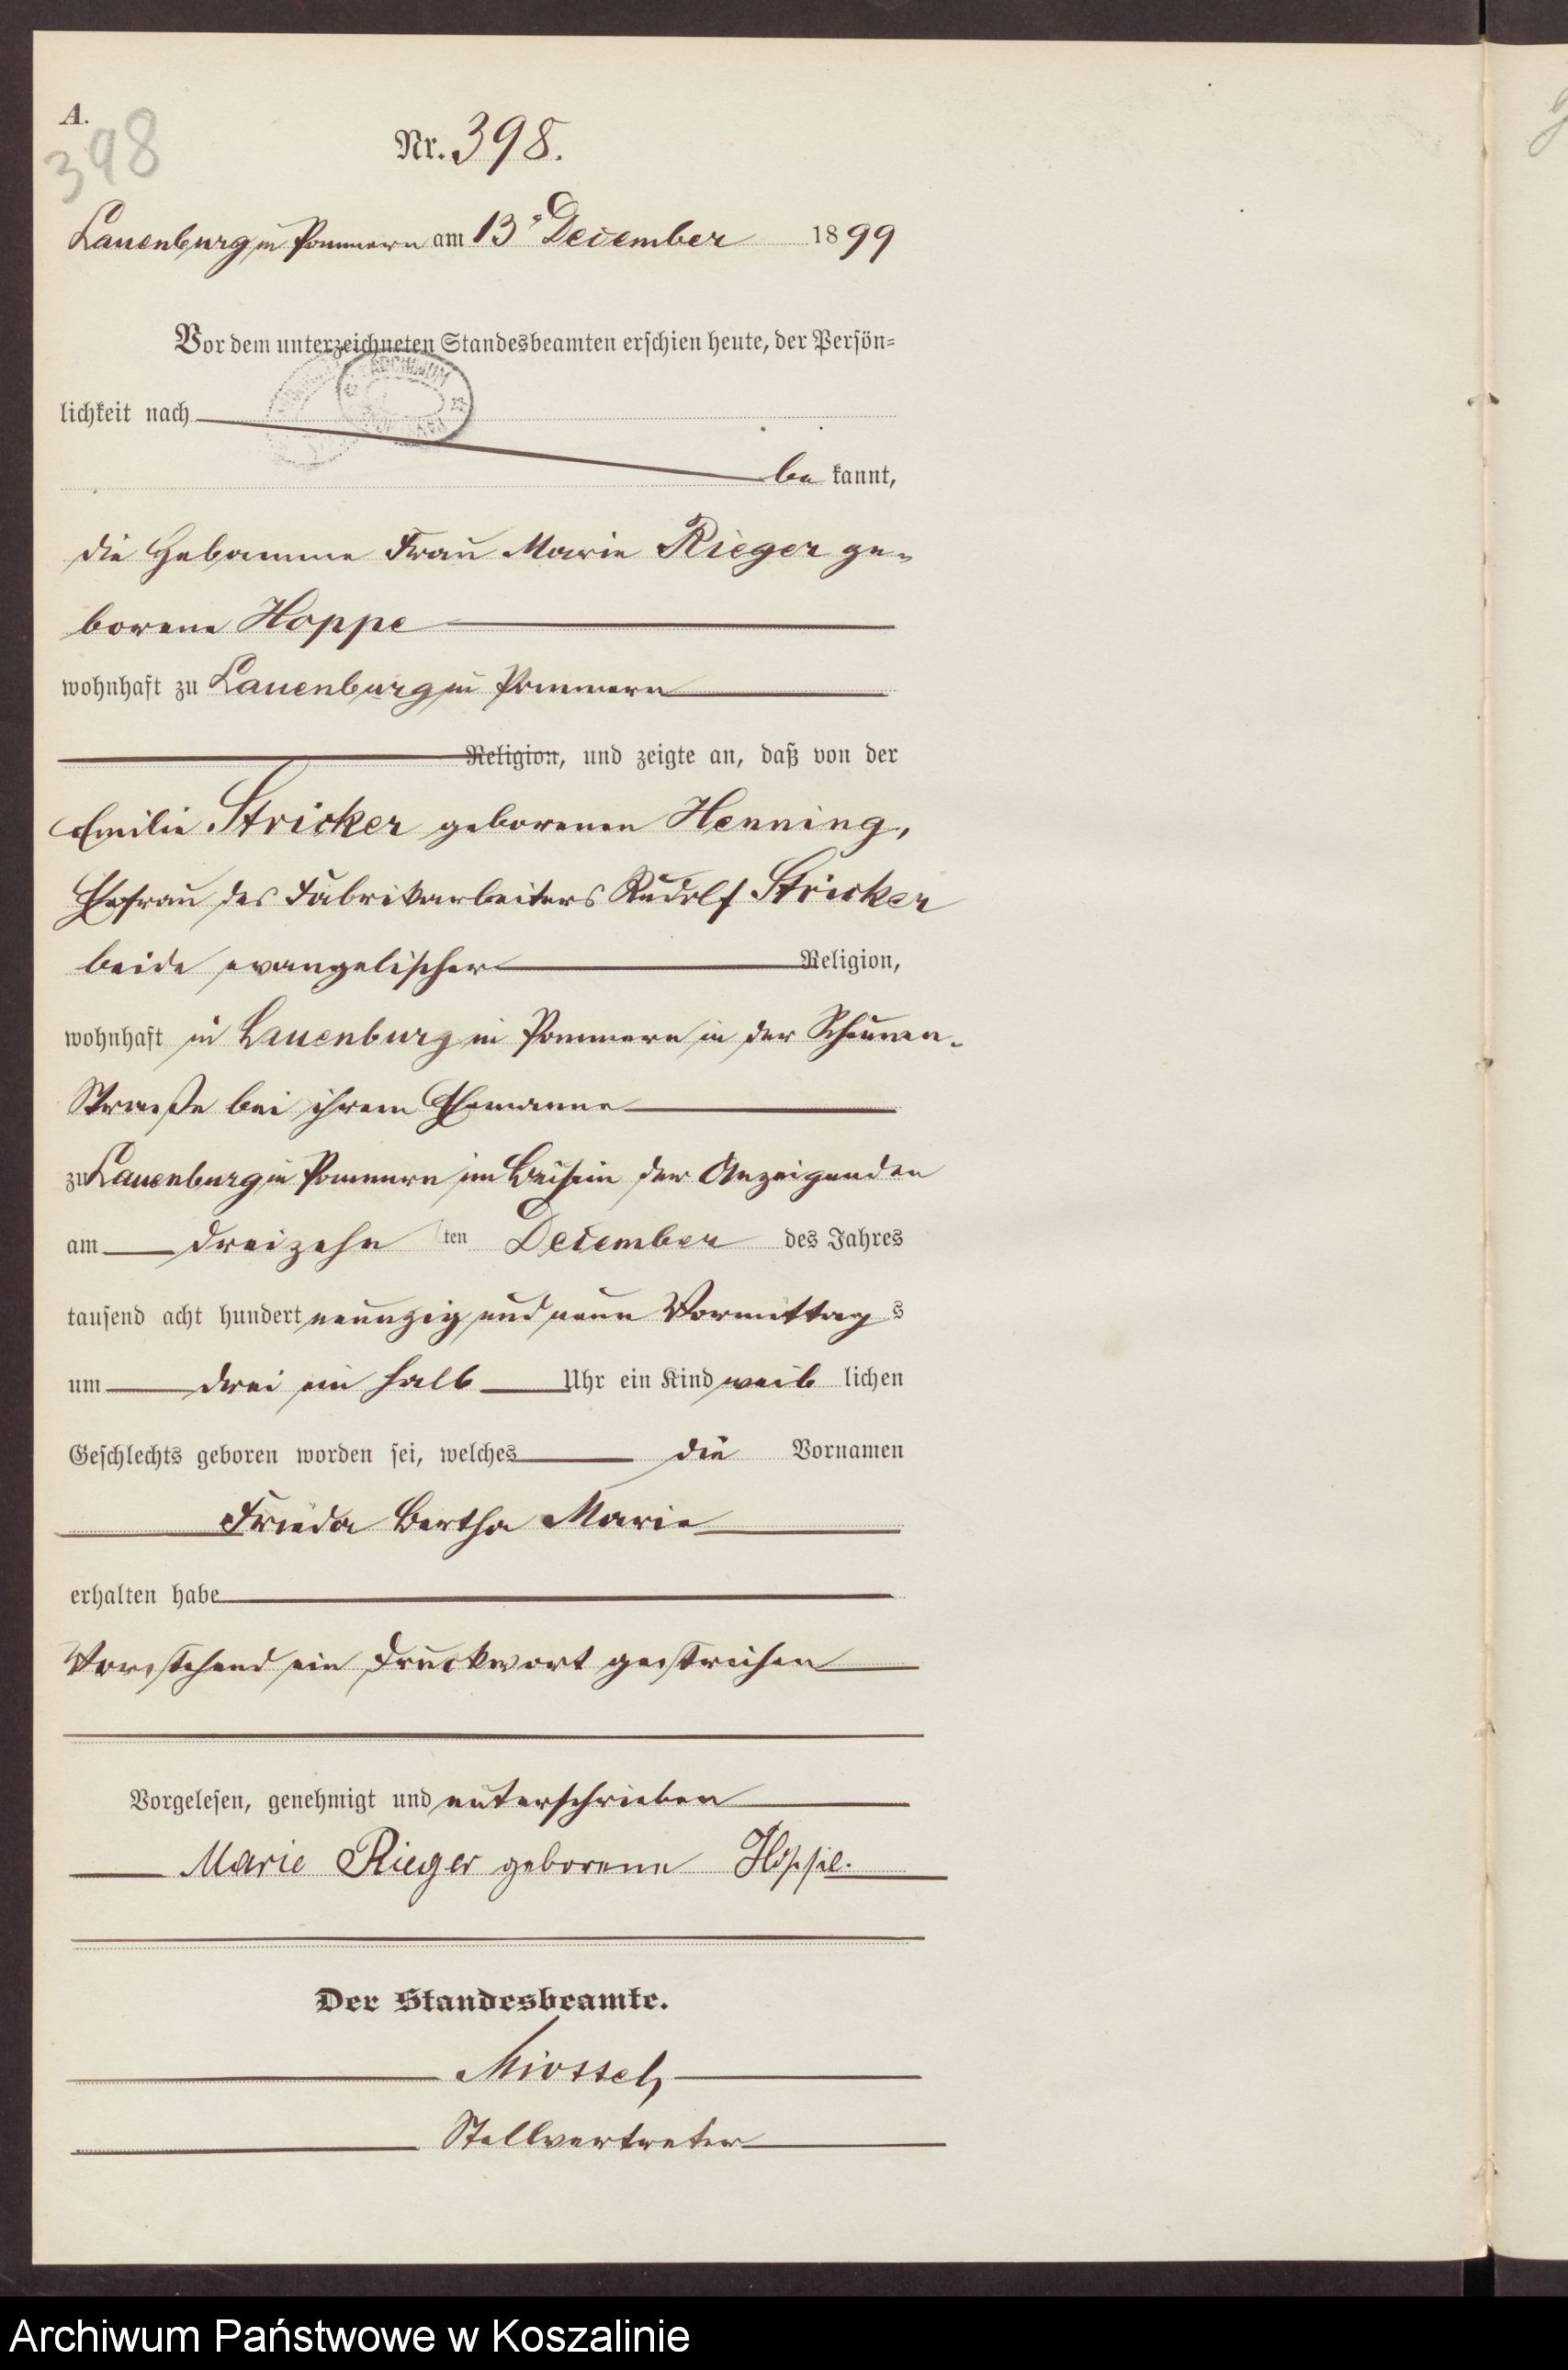 A.
398
Nr. 398.
Lauenburg in Pommern am 13ᵗ December 1899
Vor dem unterzeichneten Standesbeamten erschien heute, der Persön-
lichkeit nach
be kannt,
die Hebamme Frau Marie Rieger ge-
borene Hoppe
wohnhaft zu Lauenburg in Pommern
Religion, und zeigte an, daß von der
Emilie Stricker geborenen Henning,
Ehefrau des Fabrikarbeiters Rudolf Stricker
beide evangelischer Religion,
wohnhaft in Lauenburg in Pommern in der Scheunen-
Straße bei ihrem Ehemanne
zu Lauenburg in Pommern im Beisein der Anzeigenden
am dreizehn ten December des Jahres
tausend acht hundert neunzig und neun Vormittag s
um drei ein halb Uhr ein Kind weib lichen
Geschlechts geboren worden sei, welches die Vornamen
Frieda Bertha Marie
erhalten habe
Vorstehend ein Druckwort gestrichen
Vorgelesen, genehmigt und unterschrieben
Marie Rieger geborene Hoppe.
Der Standesbeamte.
Stellvertreter
Archiwum Państwowe w Koszalinie